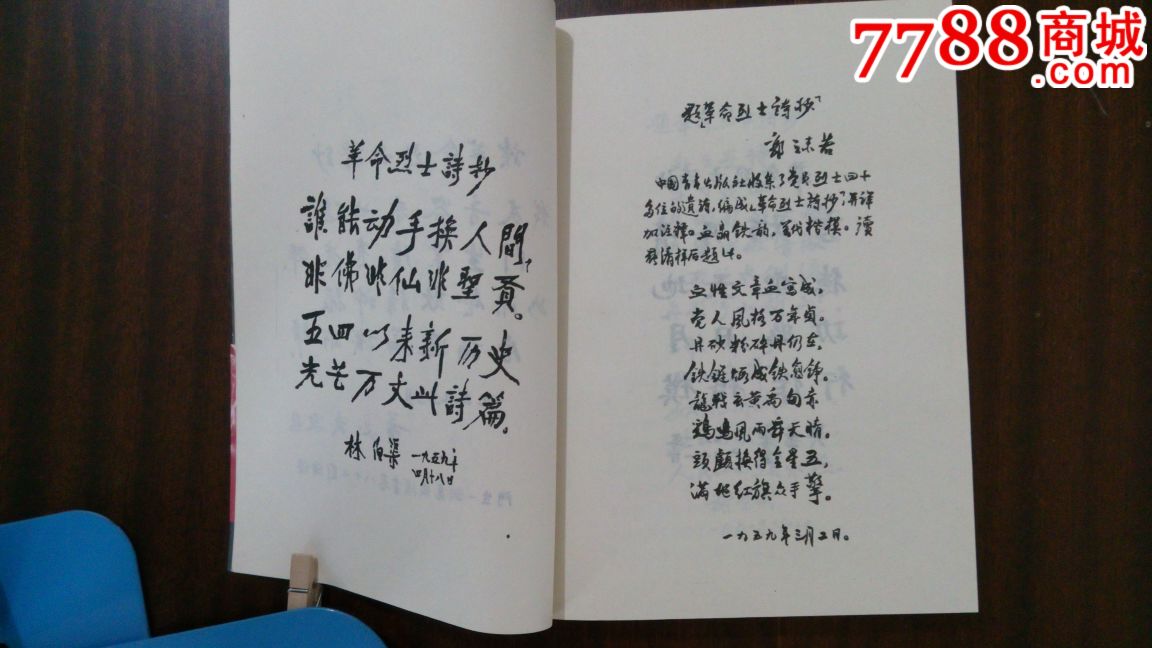 革命烈士詩抄
誰能动手換人間，
非佛非仙非聖賢。
五四以来新历史
光芒万丈此詩篇。
林伯渠
一九五九年
四月十八日
題「革命烈士詩抄」
郭沫若
中国青年出版社收集了党员烈士四十
多位的遺詩，編成「革命烈士詩抄」，并詳
加注釋。血晶鉄韵，万代楷模。讀
清样后題此。
血性文章血写成，
党人風格万年貞。
丹砂粉碎丹仍在，
鉄鏈
龍戰玄黄
鷄鳴風雨舞天晴。
頭顱換得金星五，
满地紅旗众手擎。
一九五九年三月五日。
7788商城
.com